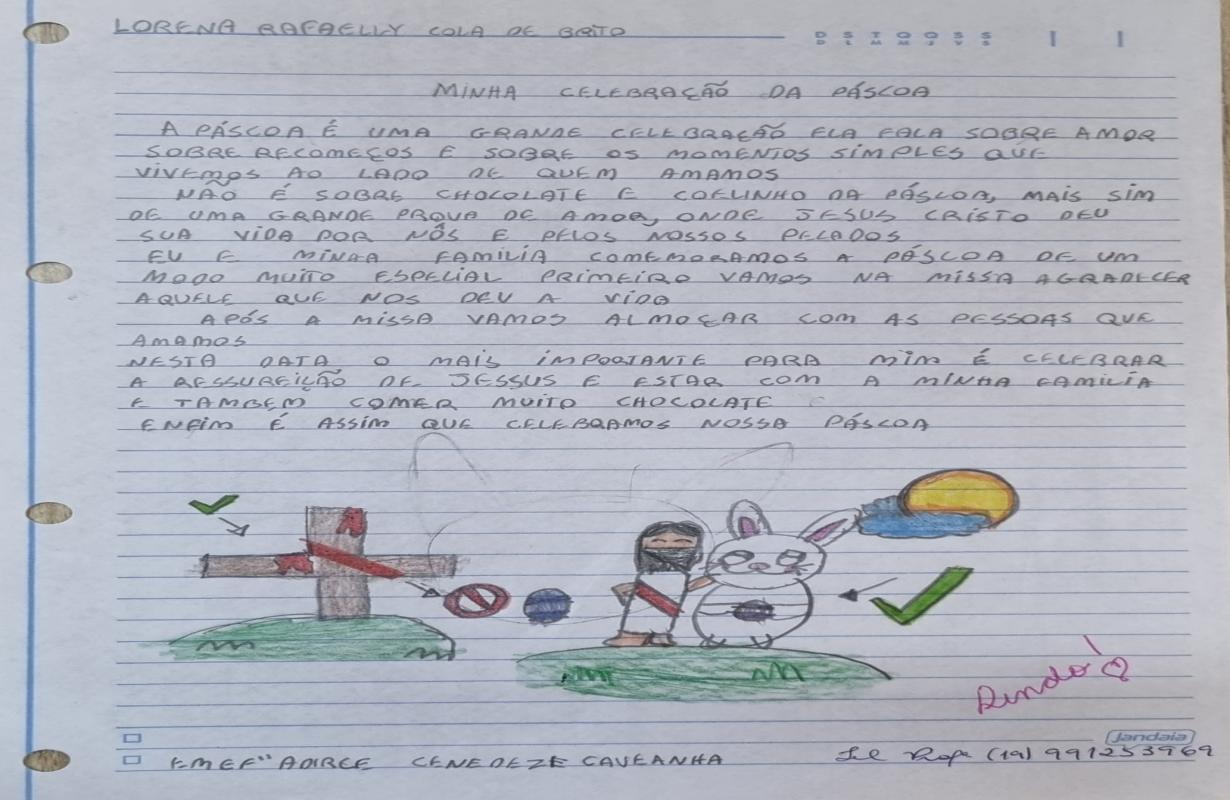 LORENA RAFAELLY COLA DE BRITO
D S T Q Q S S
D L M M J V S
MINHA CELEBRAÇÃO DA PÁSCOA
A PÁSCOA É UMA GRANDE CELEBRAÇÃO ELA FALA SOBRE AMOR
SOBRE RECOMEÇOS E SOBRE OS MOMENTOS SIMPLES QUE
VIVEMOS AO LADO DE QUEM AMAMOS
NÃO É SOBRE CHOCOLATE E COELINHO DA PÁSCOA, MAIS SIM
DE UMA GRANDE PROVA DE AMOR, ONDE JESUS CRISTO DEU
SUA VIDA POR NÓS E PELOS NOSSOS PECADOS
EU E MINHA FAMILIA COMEMORAMOS A PÁSCOA DE UM
MODO MUITO ESPECIAL PRIMEIRO VAMOS NA MISSA AGRADECER
AQUELE QUE NOS DEU A VIDA
APÓS A MISSA VAMOS ALMOÇAR COM AS PESSOAS QUE
AMAMOS
NESTA DATA O MAIS IMPORTANTE PARA MIM É CELEBRAR
A RESSUREIÇÃO DE JESSUS E ESTAR COM A MINHA FAMILIA
E TAMBEM COMER MUITO CHOCOLATE
ENFIM É ASSIM QUE CELEBRAMOS NOSSA PÁSCOA
Jandaia
EMEF" ADIRCE CENEDEZE CAVEANHA
(19) 991253969